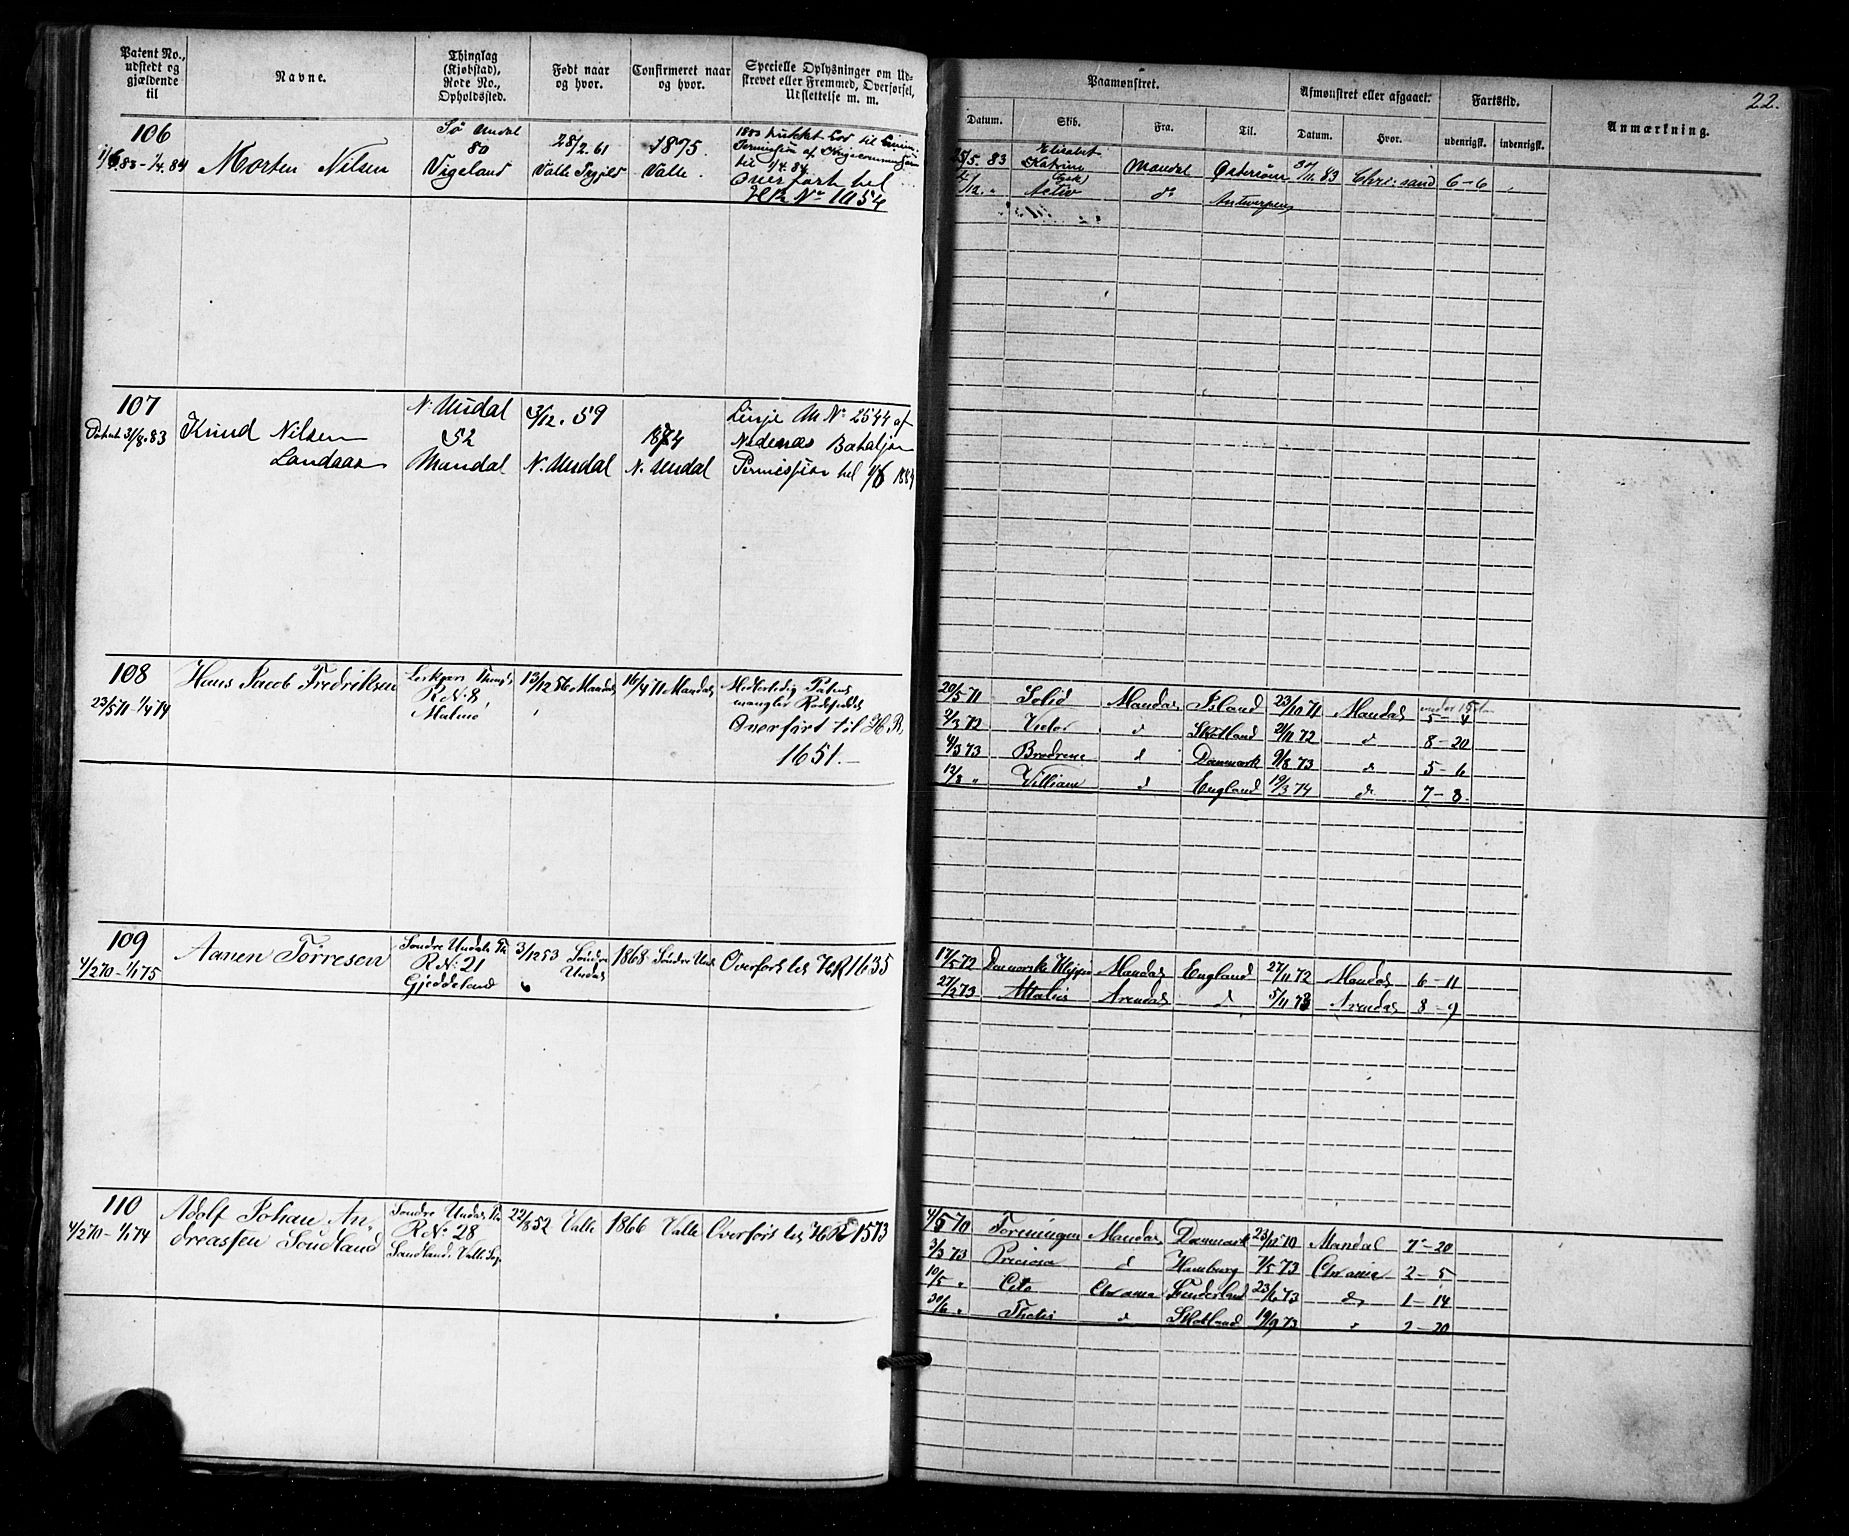 Patent No., udstedt og gjældende til
Navne.
Thinglag (Kjøbstad), Rode No., Opholdssted.
Født naar og hvor.
Confirmeret naar og hvor.
Specielle Oplysninger om Udskrevet eller Fremmed, Overførsel, Udslettelse m. m.
Paamønstret.
Afmønstret eller afgaaet.
Fartstid.
22.
Datum.
Skib.
Fra.
Til.
Datum.
Hvor.
udenrigsk.
indenrigsk.
Anmærkning.
106
1/6 83 - 1/4 84
Morten Nilsen
Sø Undal
80
Vigeland
28/2.61
Valle
1875.
Valle.
til 1/4.84
Overført til
H R No 1654
25/5. 83
Elisabet
Katrine
Mandal
Østersøen
83
Chri:sand
6-6
/12. "
Activ
do
Antwerpen
107
Patent 31/8.83
Knud Nilsen
Landaas
N. Undal
52
Mandal
3/12. 59
N. Undal
1874
N. Undal
Linje M No 2544 af
Nedenæs Bataljon
Permission til 1/6 1884
108
23/5 71 - 1/4 74
Hans Jacob Fredriksen
R No 8,
Malmø
13/12 56 Mandal
16/4 71 Mandal
Midlertidig Patent
mangler Rødeseddel
Overført til H. R,
1651.-
20/5 71
Solid
Mandal
Island
23/10 71
Mandal
under 15 t.
5-4
2/3 72
Victor
d
Skotland
21/11 72
d
8-20
4/3 73
Brødrene
d
Danmark
9/8 73
d
5-6
12/8 "
William
d
England
19/3 74
d
7-8.
109
4/2 70 - 1/1 75
Aanen Tørresen
Søndre Undals Th
R No: 21
Gjeddeland
3/12 53 Søndre
Undal
1868 Søndre Und.
Overført til H R 1635
17/5 72
Mandal
England
27/11 72
Mandal
6-11
27/2 73
Attalus
Arendal
d
5/11 73
Arendal
8-9
110
4/2 70 - 1/1 74
Adolf Johan An-
dreassen Søndland
Søndre Undals Th
R No: 28
Sandland. Valle Sogn
22/8 52 Valle
1866 Valle
Overført til H R 1573
4/5 70
Foreningen
Mandal
Danmark
23/11 70
Mandal
7-20
3/3 73
Preciosa
d
Hamburg
7/5 73
Chr ania
2-5
10/5 "
Ceto
Chr ania
Sunderland
23/6 73
do
1-14
30/6 "
Thetis
d
Skotland
19/9 73
"
2-20